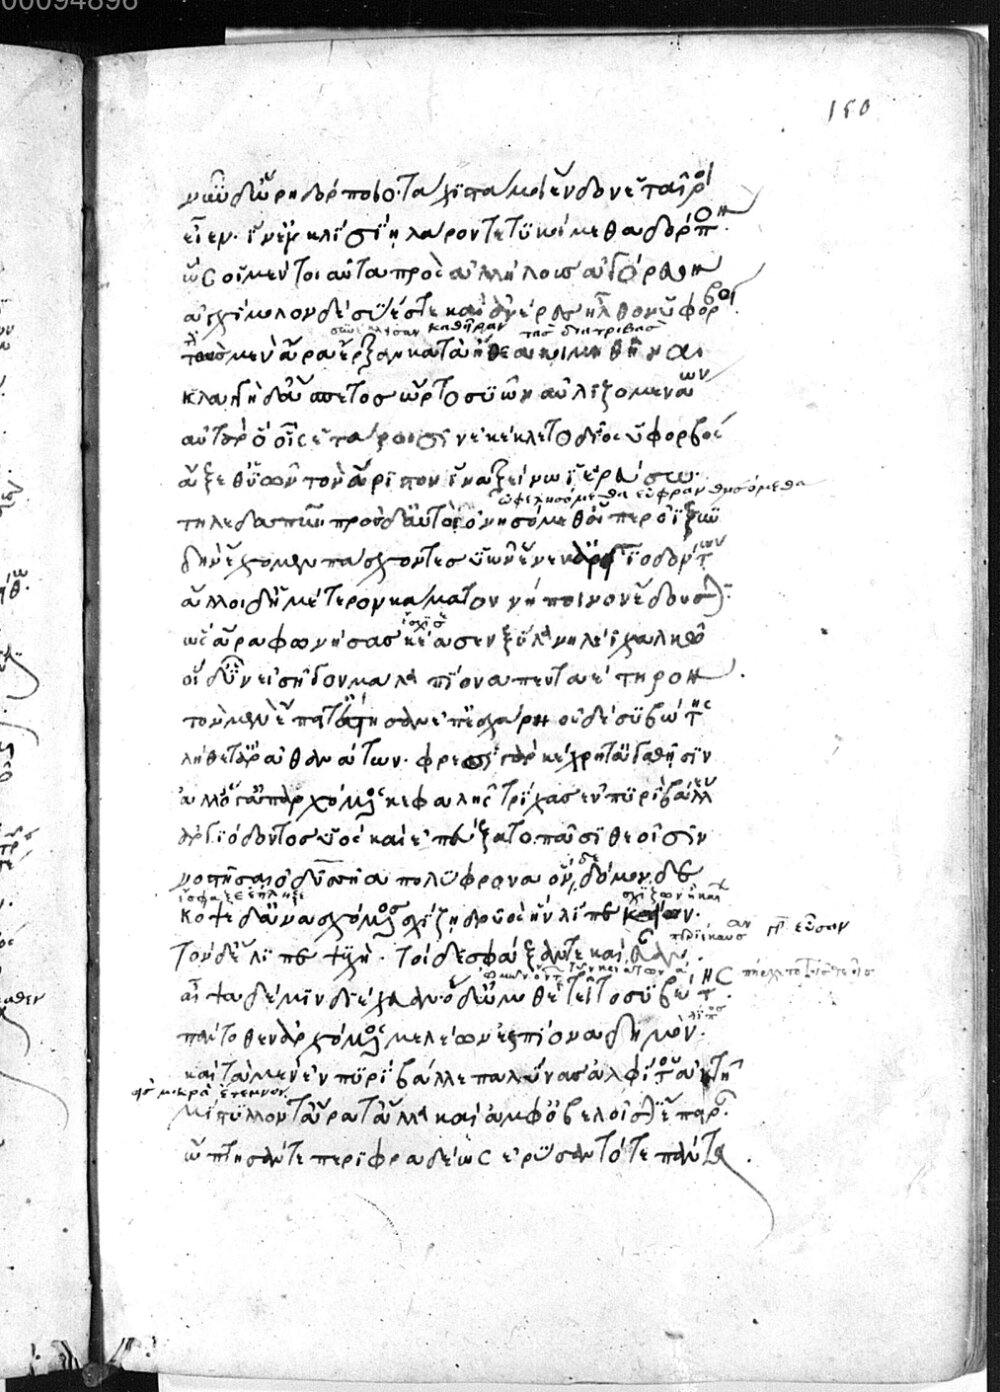 150
νῦν δ' ὥρη δόρποιο· τάχιστά μοι ἔνδον ἑταῖροι
εἶεν· ἵν' ἐν κλισίῃ λαρὸν τετυκοίμεθα δόρπον·
ὣς οἱ μὲν τοιαῦτα πρὸς ἀλλήλους ἀγόρευον
ἀγχίμολον δὲ σύες τε καὶ ἀνέρες ἦλθον ὑφορβοί·
καθεῖρξαν τὰς διατριβάς
τὰς μὲν ἄρα εἶρξαν κατὰ ἤθεα κοιμηθῆναι
κλαγγὴ δ' ἄσπετος ὦρτο συῶν αὐλιζομενάων
αὐτὰρ ὁ οἷς ἑτάροισιν ἐκέκλετο δῖος ὑφορβός
ἄξεθ' ὑῶν τὸν ἄριστον ἵνα ξείνῳ ἱερεύσω·
ὠφελησόμεθα εὐφρανθησόμεθα
τηλεδαπῷ πρὸς δ' αὐτοὶ ὀνησόμεθ' οἵ περ ὀϊζὺν
δὴν ἔχομεν πάσχοντες ὑῶν ἕνεκ' ἀργιοδόντων
ἄλλοι δ' ἡμέτερον κάματον νήποινον ἔδουσιν·
ἔσχισε
ὣς ἄρα φωνήσας κέασεν ξύλα νηλέϊ χαλκῷ
οἱ δ' ὗν εἰσῆγον μάλα πίονα πενταέτηρον.
τὸν μὲν ἔπειτ' ἔστησαν ἐπ' ἐσχάρῃ οὐδὲ συβώτης
λήθετ' ἄρ' ἀθανάτων· φρεσὶ γὰρ κέχρητ' ἀγαθῇσιν
ἀλλ' ὅγ' ἀπαρχόμενος κεφαλῆς τρίχας ἐν πυρὶ βάλλεν
ἀργιόδοντος ὑός καὶ ἐπεύξατο πᾶσι θεοῖσιν
νοστῆσαι ὀδυσῆα πολύφρονα ὅνδε δόμονδε
ἔσφαξε ἔπληξε σχίζων ἢ καίων
κόψε δ' ἀνασχόμενος σχίζῃ δρυὸς ἣν λίπε κείων·
περιέκαυσαν εὗσαν
τὸν δ' ἔλιπε ψυχή· τοὶ δὲ σφάξαν τε καὶ εὗσαν.
αἶψα δέ μιν διέχευαν· ὁ δ' ὠμοθετεῖτο συβώτης·
πάντοθεν ἀρχόμενος μελέων ἐς πίονα δημόν·
λίπος
καὶ τὰ μὲν ἐν πυρὶ βάλλε παλύνας ἀλφίτου ἀκτῇ
εἰς μικρὰ ἔτεμνον
μίστυλλόν τ' ἄρα τἆλλα καὶ ἀμφ' ὀβελοῖσιν ἔπειραν·
ὤπτησάν τε περιφραδέως ἐρύσαντό τε πάντα.